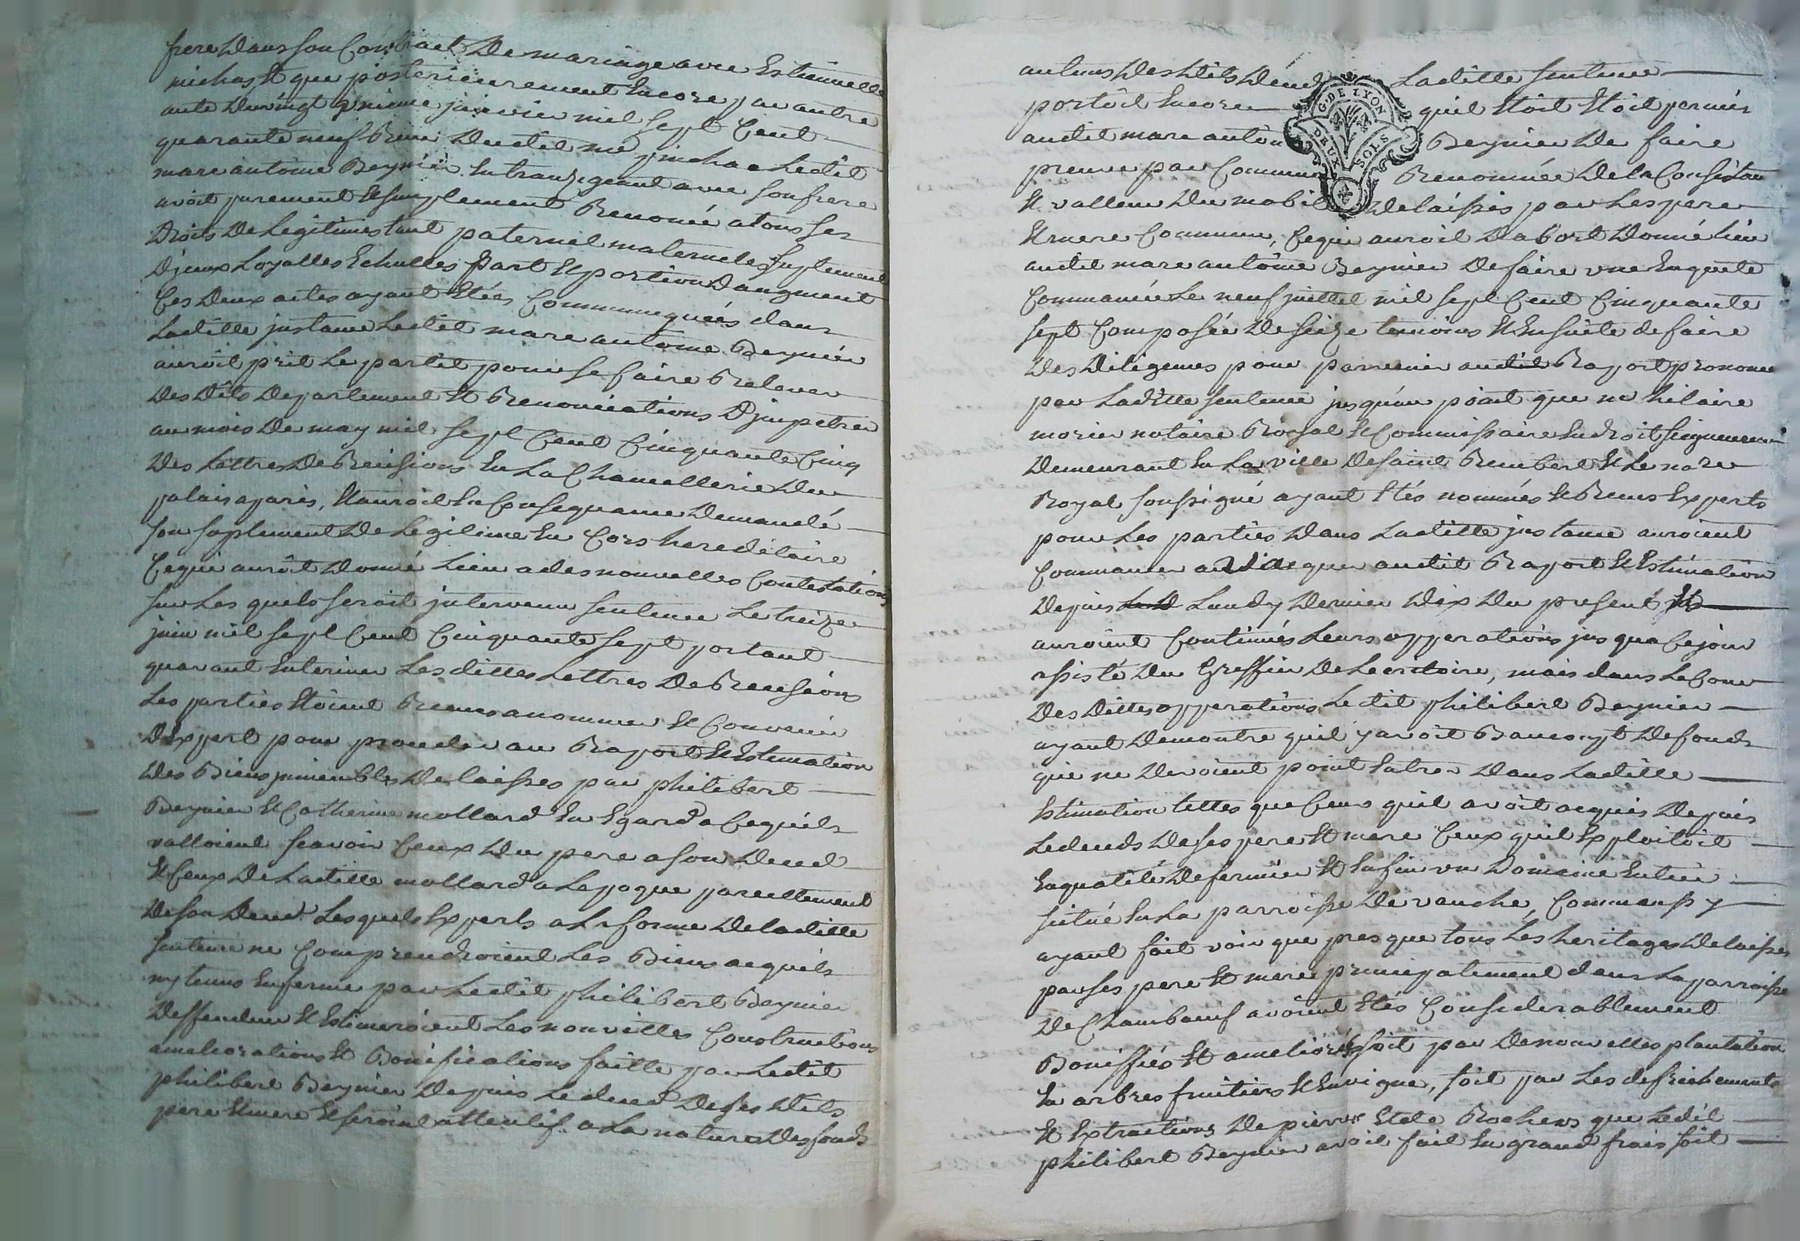 frere dans son Contract De mariage avec Estiennette
michas et que posterieurement Encore par autre
acte du vingt janvier mil sept Cent
quarante neuf Reçu Dudit me pincha Ledit
marc antoine Beynier En tranzigeant avec son frere
avoit purement et simplement Renoncé a tous ses
Droits De Legitimes tant paternel maternel suplement
D'jceux Loyalles Echultes part et portion D'augment
Ces Deux actes ayant Etées Communiquées dans
Laditte jnstance Ledit marc antoine Beynier
auroit prit Le partit pour se faire Relever
Des Dits Departement et Renonciations D'jmpetrer
au mois De may mil sept Cent Cinquante Cinq
Des Lettres De Recisions En La Chancellerie Du
palais a paris, Et auroit En Consequance Demandé
son suplement De Legitime En Cors hereditaire
Ce qui auroit Donné Lieu a des nouvelles Contestations
sur Les quels seroit jntervenu sentence Le treize
juin mil sept Cent Cinquante sept portant
qu'avant Enteriner Les dittes Lettres De Recisions
Les parties Etoient Reçues a nommer et Convenir
D'expert pour proceder au Raport et Estimation
Des Biens jmmeubles De laissés par philibert
Beynier et Catherine mollard En Egard a Ce qu'ils
valloient scavoir Ceux Du pere a son Deced
et Ceux De Laditte mollard a L'epoque pareillement
De son Deced. Les quels Experts a La forme De laditte
sentence ne Comprendroient Les Biens acquis
ny tenus En ferme par Ledit philibert Beynier
Deffendeur et Estimeroient Les nouvelles Constructions
ameliorations et Bonifications faitte par Ledit
philibert Beynier Depuis Le deced De ses Dits
pere et mere et seroient attentif a La nature Des fonds
au tems Des Dits Deced Laditte sentence
portoit Encore qu'il Etoit Etoit permis
audit marc antoine Beynier De faire
preuve par Commune Renommée De la Consistance
et valleur Du mobilier Delaissés par Les pere
et mere Communs, Ce qui auroit D'abort Donné lieu
audit marc antoine Beynier De faire une Enquete
Commancée Le neuf juillet mil sept Cent Cinquante
sept Composée De seize temoins et Ensuite de faire
Des Diligences pour parvenir audit Raport prononcé
par Laditte sentence jusqu'au point que me hilaire
morier notaire Royal et Commissaire En droit seigneuriaux
Demeurant En La ville De saint Rembert et Le nore
Royal soussigné ayant Etés nommés et Reçus Experts
pour Les parties Dans Laditte jnstance auroient
Commancer a Vacquer audit Raport et Estimation
Depuis Lundy Dernier Dix Du present Et
auroient Continués Leurs opperations jusqu'a Ce jour
assisté Du Greffier De Lecritoire, mais dans Le Cour
Des Dittes opperations Ledit philibert Beynier
ayant Demontré qu'il y avoit Baucoupt De fonds
qui ne Devoient point Entrer Dans Laditte
Estimation telles que Ceux qu'il avoit acquis Depuis
Le deceds De ses pere et mere Ceux qu'il Exploitoit
En qualité De fermier et Enfin un Domaine Entier
situé En La parroisse De vauche, Comme aussy
ayant fait voir que presque tous Les heritages Delaissés
par ses pere et mere principalement dans La parroisse
De Chambœuf avoient Etés Considerablement
Bonifiés et ameliorés soit par De nouvelles plantation
En arbres fruitiers et En vigne, soit par Les defrichements
et Extractions De pierres Et de Rochers que Ledit
philibert Beynier avoit fait En grand frais soit
G. DE LYON
DEUX SOLS